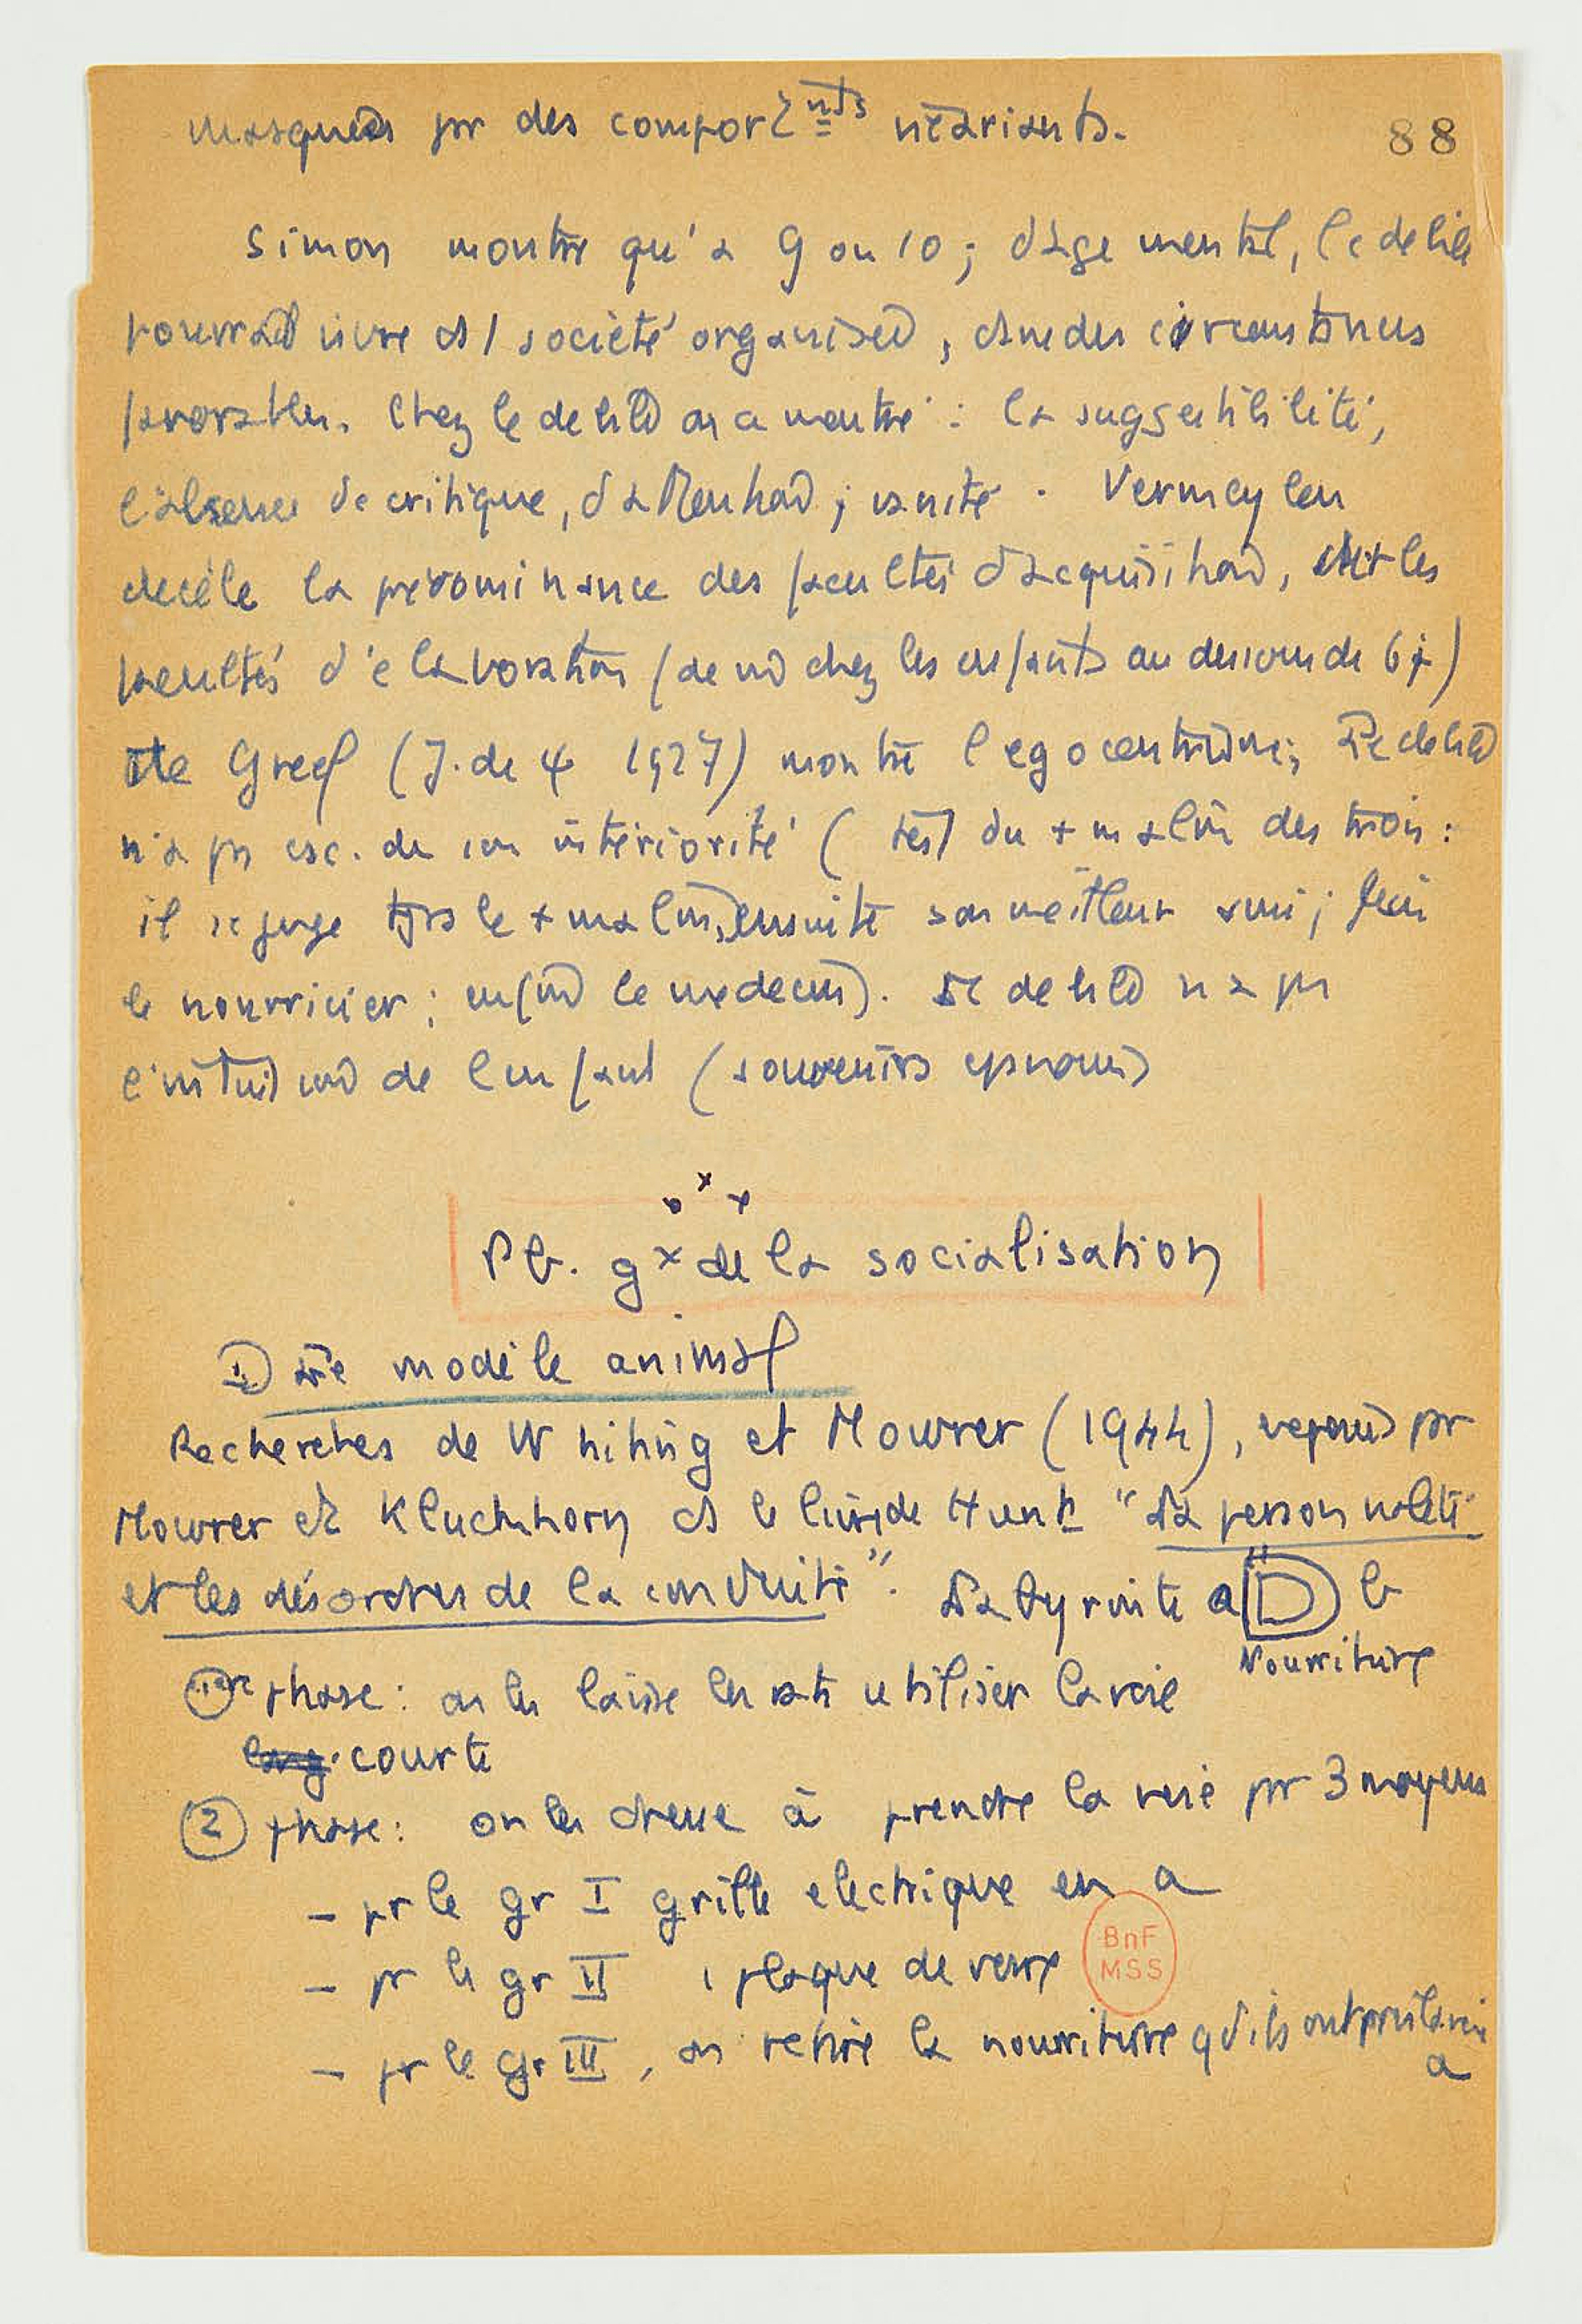 masquées pr des comportmts vicariants.
88
Simon montre qu'à 9 ou 10 ; d'age mental, le debile
pourrait vivre ds 1 société organisée, ds circonstances
favorables. Chez le debile on a montré : la suggestibilité,
l'absence de critique, d'attention ; vanité. Vermeylen
décèle la prédominance des facultés d'acquisition, les
facultés d'elaboration (de chez les enfants au dessous de 6 ;)
De Greef (J. de ψ 1927) montre l'egocentrisme ; Le debile
n'a pas csc. de son intériorité (test du + malin des trois :
il se juge tjrs le + malin, ensuite son meilleur ami ; puis
le nourricier ; enfin le medecin). Le debile n'a pas
l'intuition de l'enfant (souvenirs
Pb. gx de la socialisation
1) Le modèle animal
Recherches de Whiting et Mowrer (1944), repris par
Mowrer et Kluchhorn ds le livre de Hunt "La personnalité
et les désordres de la conduite". Labyrinte a b
Nourriture
1ere phase : on les laisse les rats utiliser la voie
long. courte
2 phase : on les dresse à prendre la voie par 3 moyens
– pr le gr I grille electrique en a
– pr le gr II 1 plaque de verre
– pr le gr III, on retire la nourriture qd ils ont pris la voie
a
BnF
MSS